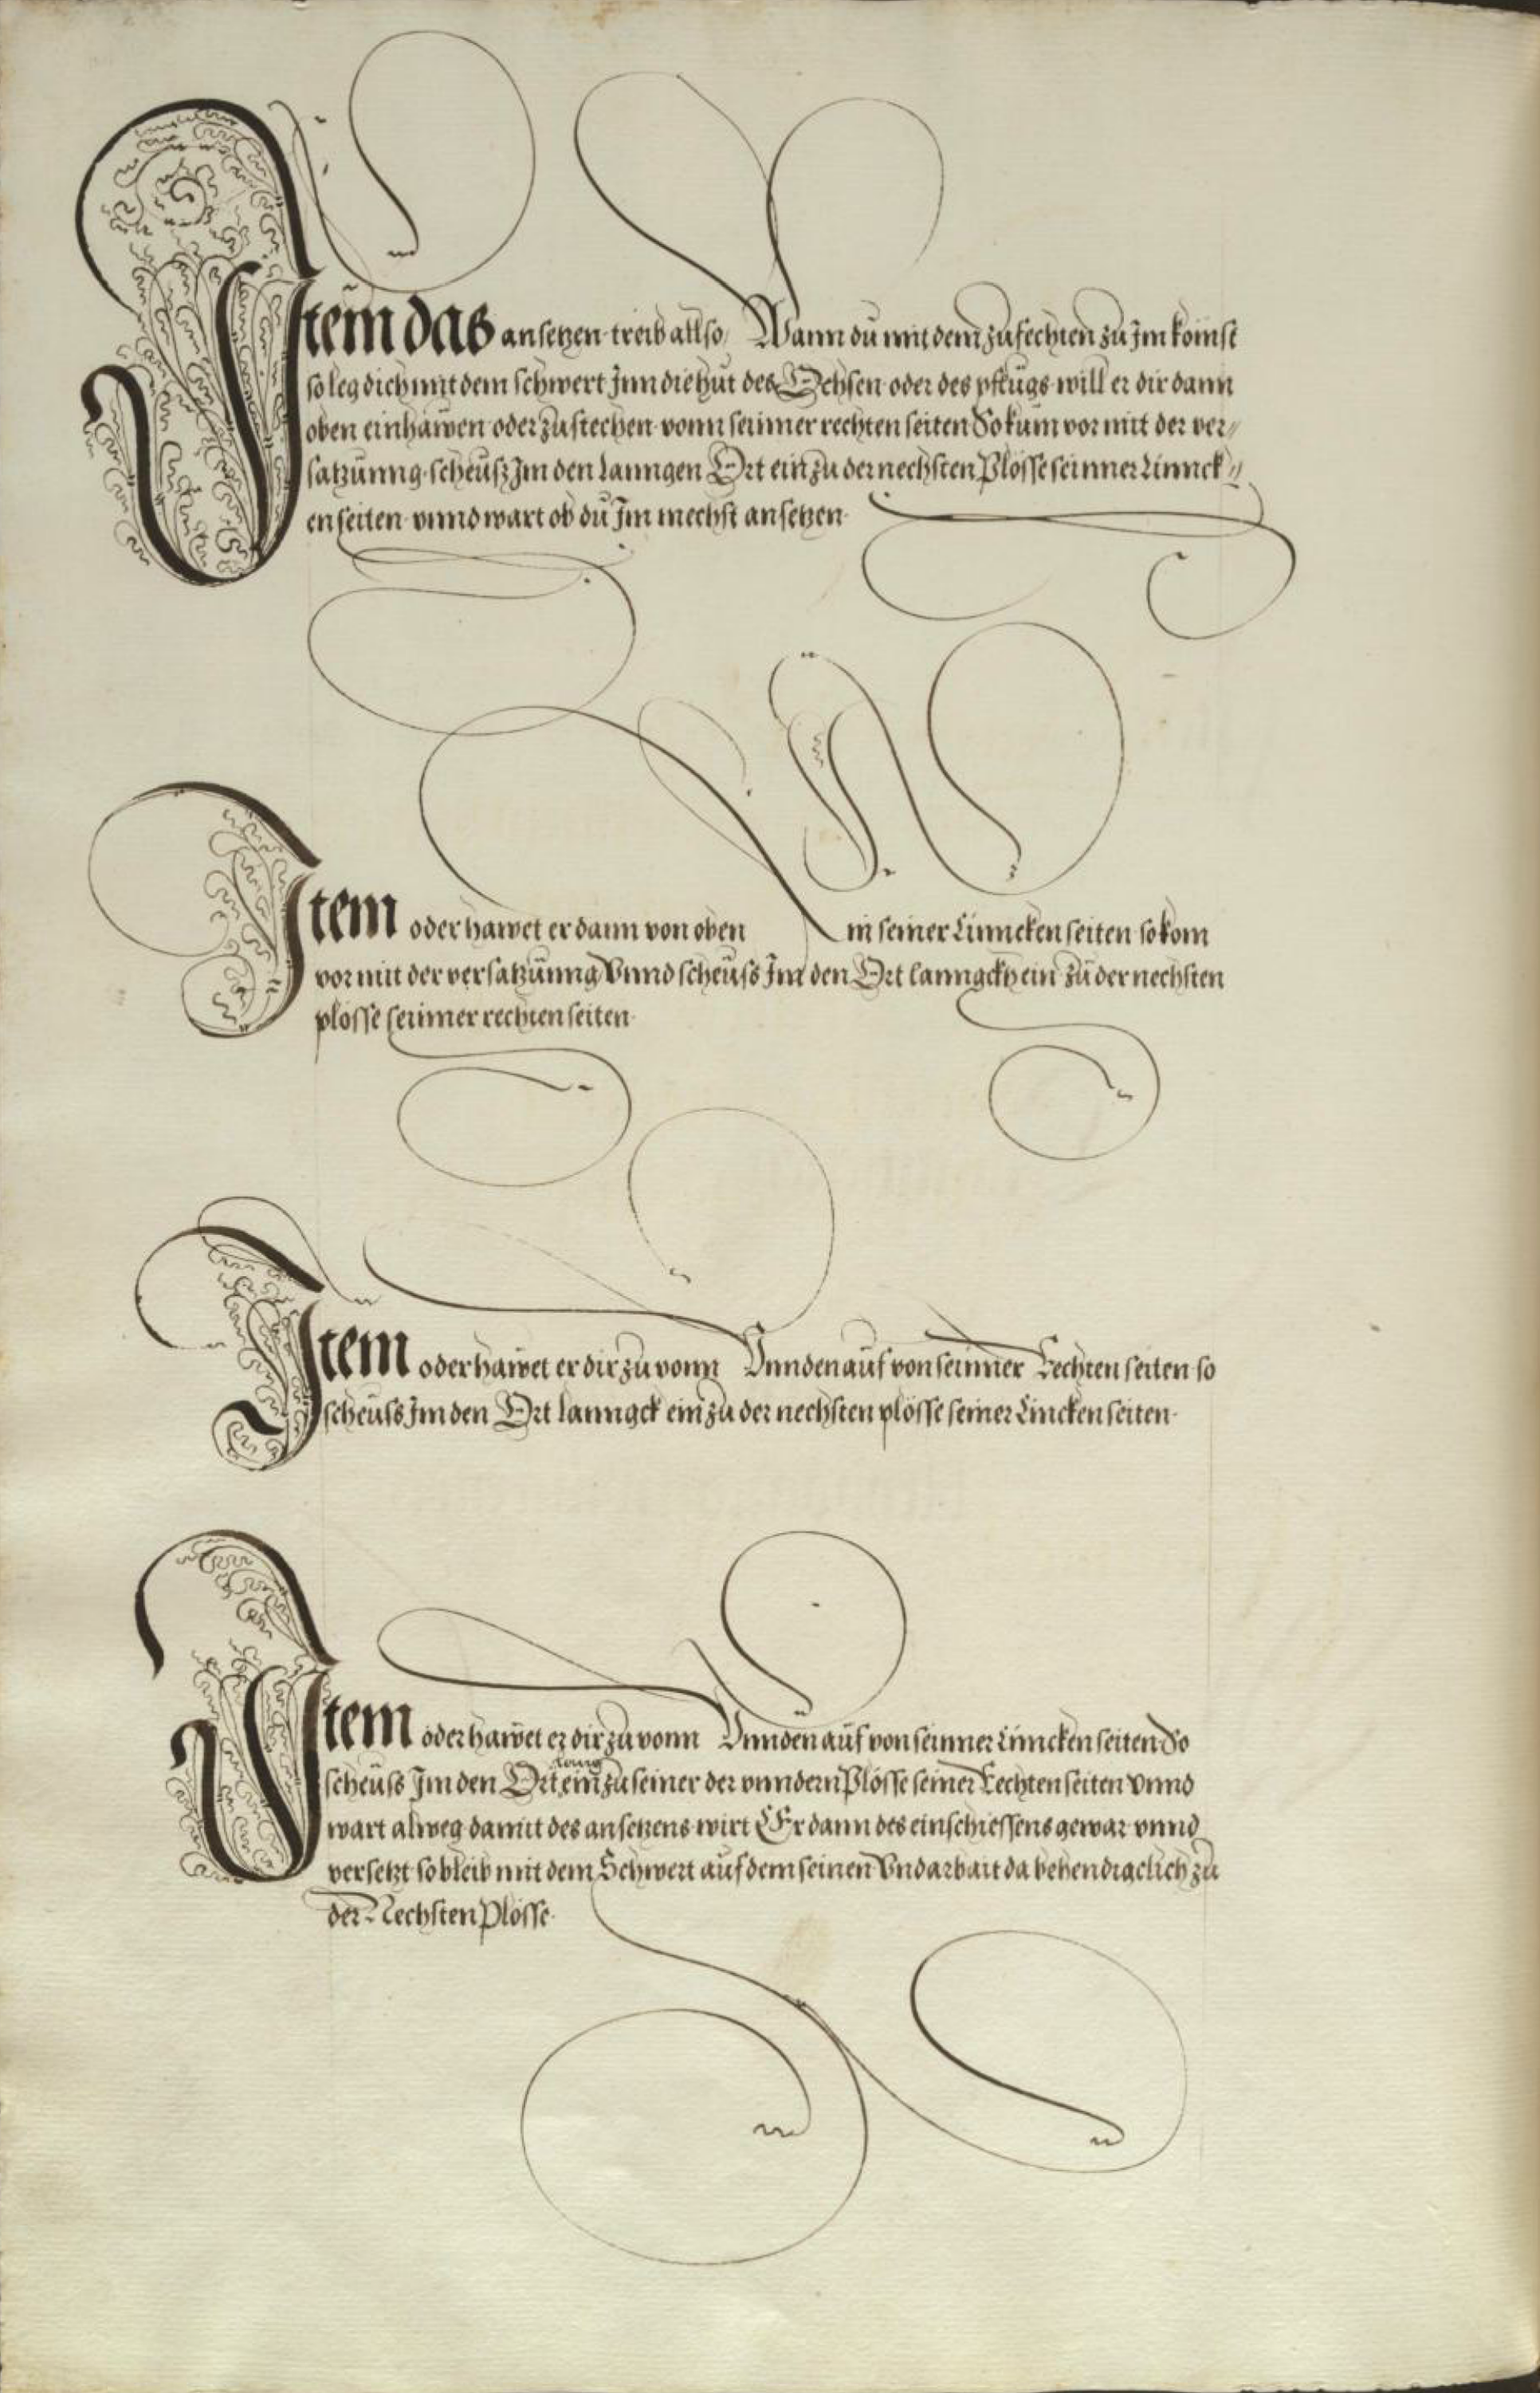 Item das ansetzen treib allso, Wann du mit dem zufechten zu Jm komst
so leg dich mit dem schwert Jnn die hut des Ochsen oder des pflugs will er dir dann
oben einhawen oder zu stechen vonn seinner rechten seiten So kum vor mit der ver//
satzünng scheüsz Jm den lanngen Ort ein zu der nechsten Plösse seinner Linnck//
en seiten vnnd wart ob du Jm mechst ansetzen
Item oder hawet er dann von oben in seiner Linncken seiten so kom
vor mit der versatzünng Vnnd scheüss Jm den Ort lanngckh ein zü der nechsten
plösse seinner rechten seiten
Item oder hawet er dir zu vonn Vnnden auf von seinner Rechten seiten so
scheüss Jm den Ort lanngck ein zu der nechsten plösse seiner Lincken seiten
Item oder hawet er dir zu vonn Vnnden auf von seinner Linncken seiten So
scheüss Jm den Ort lang ein zu seiner der vnndern Plösse seiner Rechten seiten Vnnd
wart alweg damit des ansetzens wirt Er dann des einschiessens gewar vnnd
versetzt so bleib mit dem Schwert auf dem seinen Vnd arbait da behendigclich zu
der Nechsten Plösse